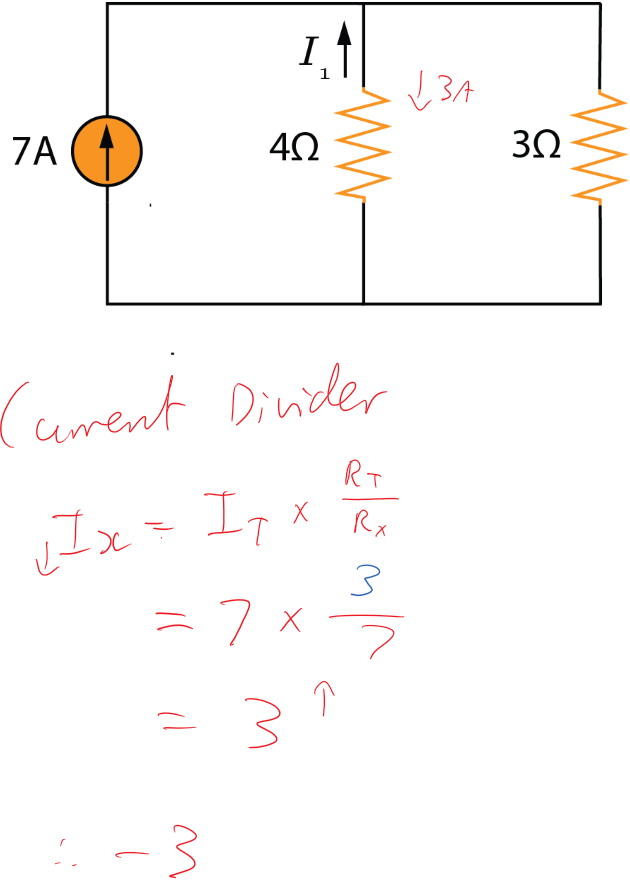 I₁ ↑ ↓ 3A
7A 4Ω 3Ω
Current Divider
↓ Ix = IT × RT/Rx
= 7 × 3/7
= 3 ↑
∴ -3